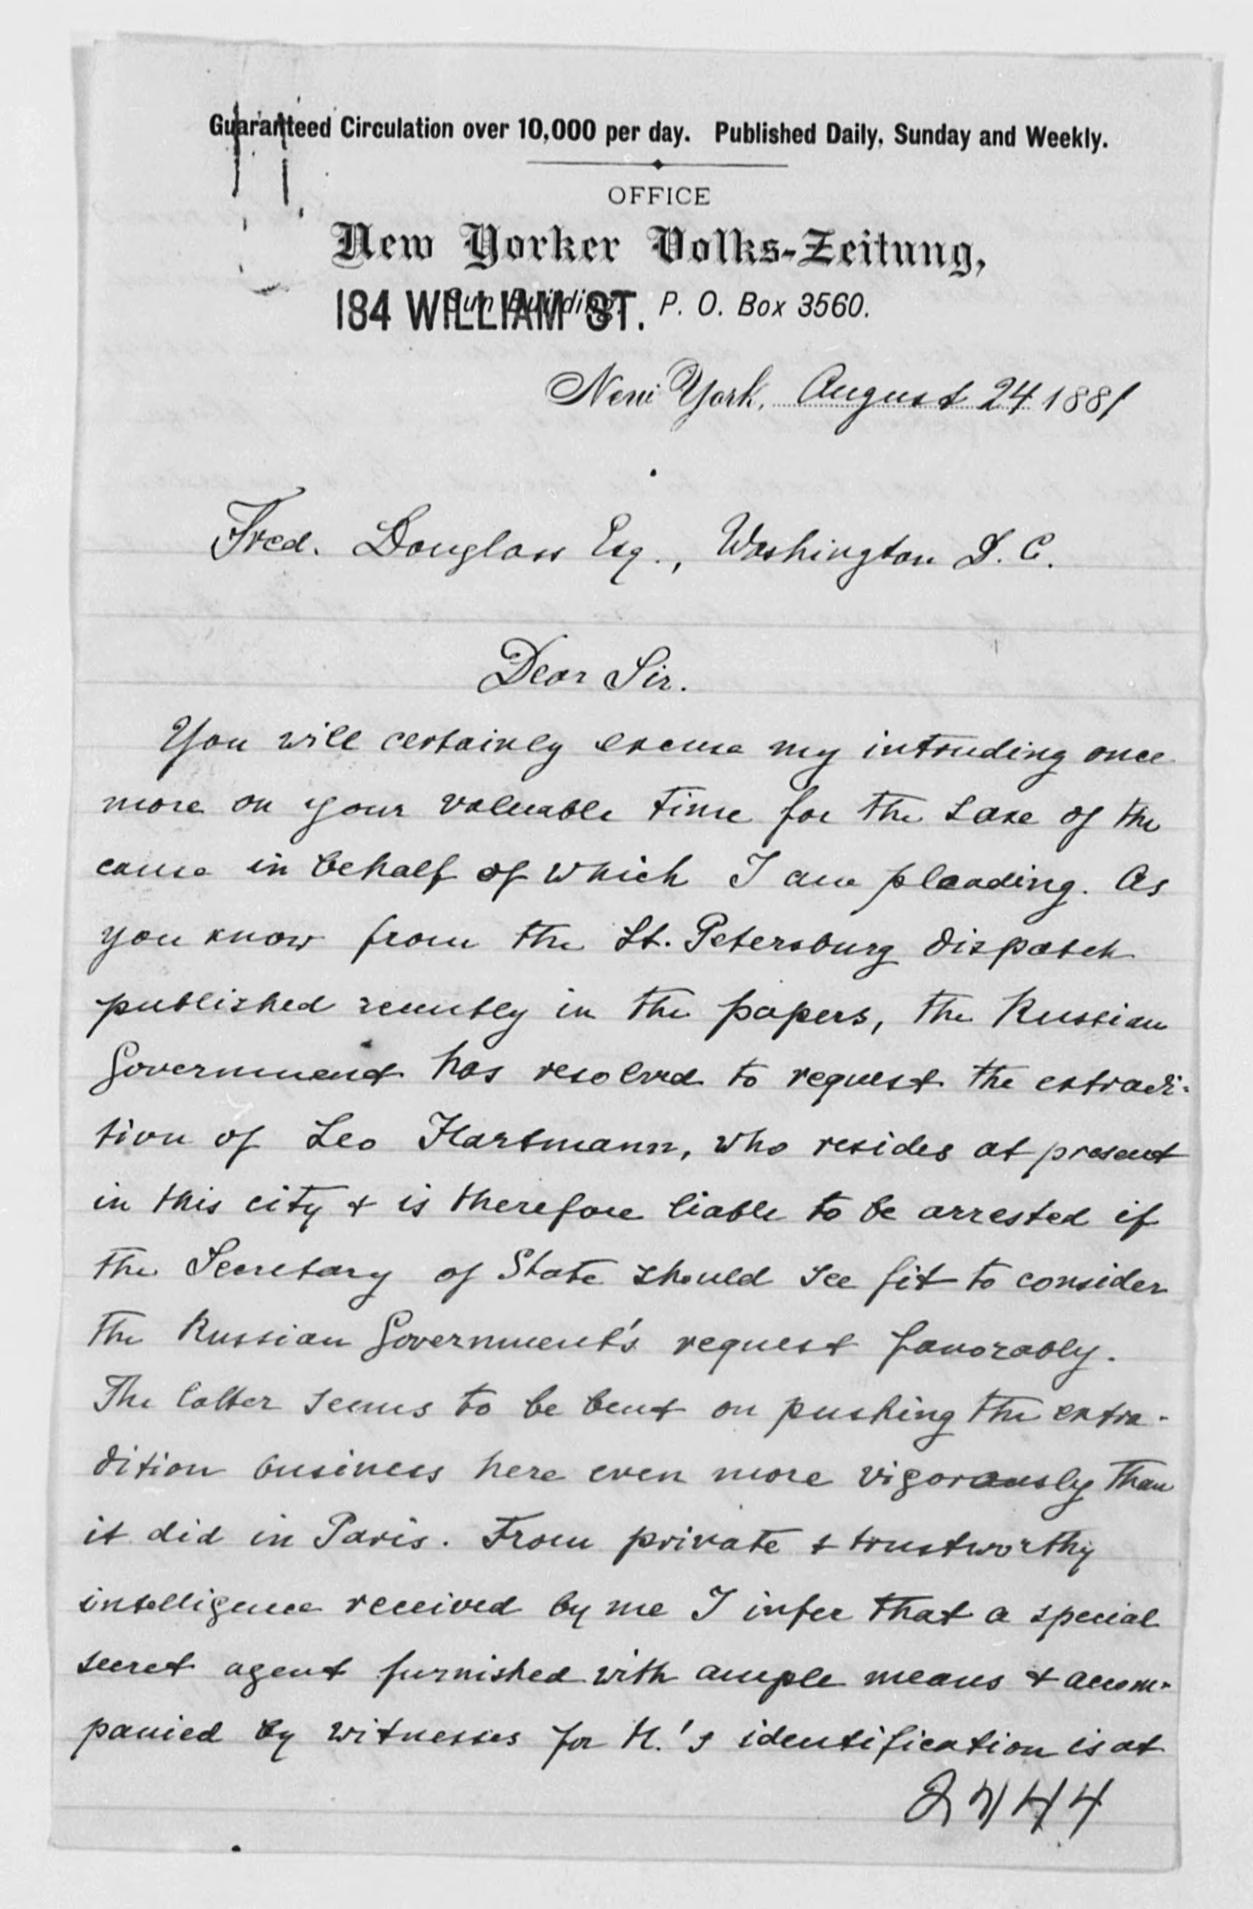 Guaranteed Circulation over 10,000 per day. Published Daily, Sunday and Weekly.
OFFICE
New Yorker Volks-Zeitung,
184 WILLIAM ST. Sun Building, P. O. Box 3560.
New York, August 24 1881
Fred. Douglass Esq., Washington D. C.
Dear Sir.
You will certainly excuse my intruding once
more on your valuable time for the sake of the
cause in behalf of which I am pleading. As
you know from the St. Petersburg dispatch
published recently in the papers, the Russian
Government has resolved to request the extradi-
tion of Leo Hartmann, who resides at present
in this city & is therefore liable to be arrested if
the Secretary of State should see fit to consider
the Russian Government's request favorably.
The latter seems to be bent on pushing the extra-
dition business here even more vigorously than
it did in Paris. From private & trustworthy
intelligence received by me I infer that a special
secret agent furnished with ample means & accom-
panied by witnesses for H.'s identification is at
2744